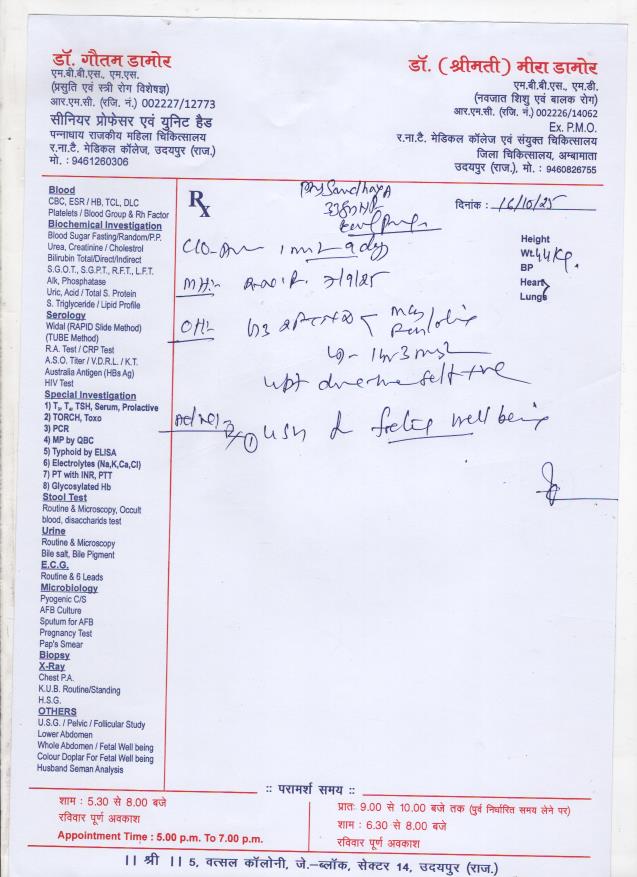 डॉ. गौतम डामोर
एम.बी.बी.एस., एम.एस.
(प्रसुति एवं स्त्री रोग विशेषज्ञ)
आर.एम.सी. (रजि. नं.) 002227/12773
सीनियर प्रोफेसर एवं युनिट हैड
पन्नाधाय राजकीय महिला चिकित्सालय
र.ना.टै. मेडिकल कॉलेज, उदयपुर (राज.)
मो. : 9461260306
डॉ. (श्रीमती) मीरा डामोर
एम.बी.बी.एस., एम.डी.
(नवजात शिशु एवं बालक रोग)
आर.एम.सी. (रजि. नं.) 002226/14062
Ex. P.M.O.
र.ना.टै. मेडिकल कॉलेज एवं संयुक्त चिकित्सालय
जिला चिकित्सालय, अम्बामाता
उदयपुर (राज.), मो. : 9460826755
Blood
CBC, ESR / HB, TCL, DLC
Platelets / Blood Group & Rh Factor
Biochemical Investigation
Blood Sugar Fasting/Random/P.P.
Urea, Creatinine / Cholestrol
Bilirubin Total/Direct/Indirect
S.G.O.T., S.G.P.T., R.F.T., L.F.T.
Alk, Phosphatase
Uric, Acid / Total S. Protein
S. Triglyceride / Lipid Profile
Serology
Widal (RAPID Slide Method)
(TUBE Method)
R.A. Test / CRP Test
A.S.O. Titer / V.D.R.L. / K.T.
Australia Antigen (HBs Ag)
HIV Test
Special Investigation
1) T₃, T₄, TSH, Serum, Prolactive
2) TORCH, Toxo
3) PCR
4) MP by QBC
5) Typhoid by ELISA
6) Electrolytes (Na,K,Ca,Cl)
7) PT with INR, PTT
8) Glycosylated Hb
Stool Test
Routine & Microscopy, Occult
blood, disaccharids test
Urine
Routine & Microscopy
Bile salt, Bile Pigment
E.C.G.
Routine & 6 Leads
Microbiology
Pyogenic C/S
AFB Culture
Sputum for AFB
Pregnancy Test
Pap's Smear
Biopsy
X-Ray
Chest P.A.
K.U.B. Routine/Standing
H.S.G.
OTHERS
U.S.G. / Pelvic / Follicular Study
Lower Abdomen
Whole Abdomen / Fetal Well being
Colour Doplar For Fetal Well being
Husband Seman Analysis
Rx
Sandhya
दिनांक : 16/10/25
Height
Wt. 44 Kg.
BP
Heart
Lungs
C/o 1 m 9 day
MH:- 7/9/25
OH:-
UPT +ve
Rx ① USG well being
:: परामर्श समय ::
शाम : 5.30 से 8.00 बजे
रविवार पूर्ण अवकाश
Appointment Time : 5.00 p.m. To 7.00 p.m.
प्रातः 9.00 से 10.00 बजे तक (पुर्व निर्धारित समय लेने पर)
शाम : 6.30 से 8.00 बजे
रविवार पूर्ण अवकाश
।। श्री ।। 5, वत्सल कॉलोनी, जे.-ब्लॉक, सेक्टर 14, उदयपुर (राज.)